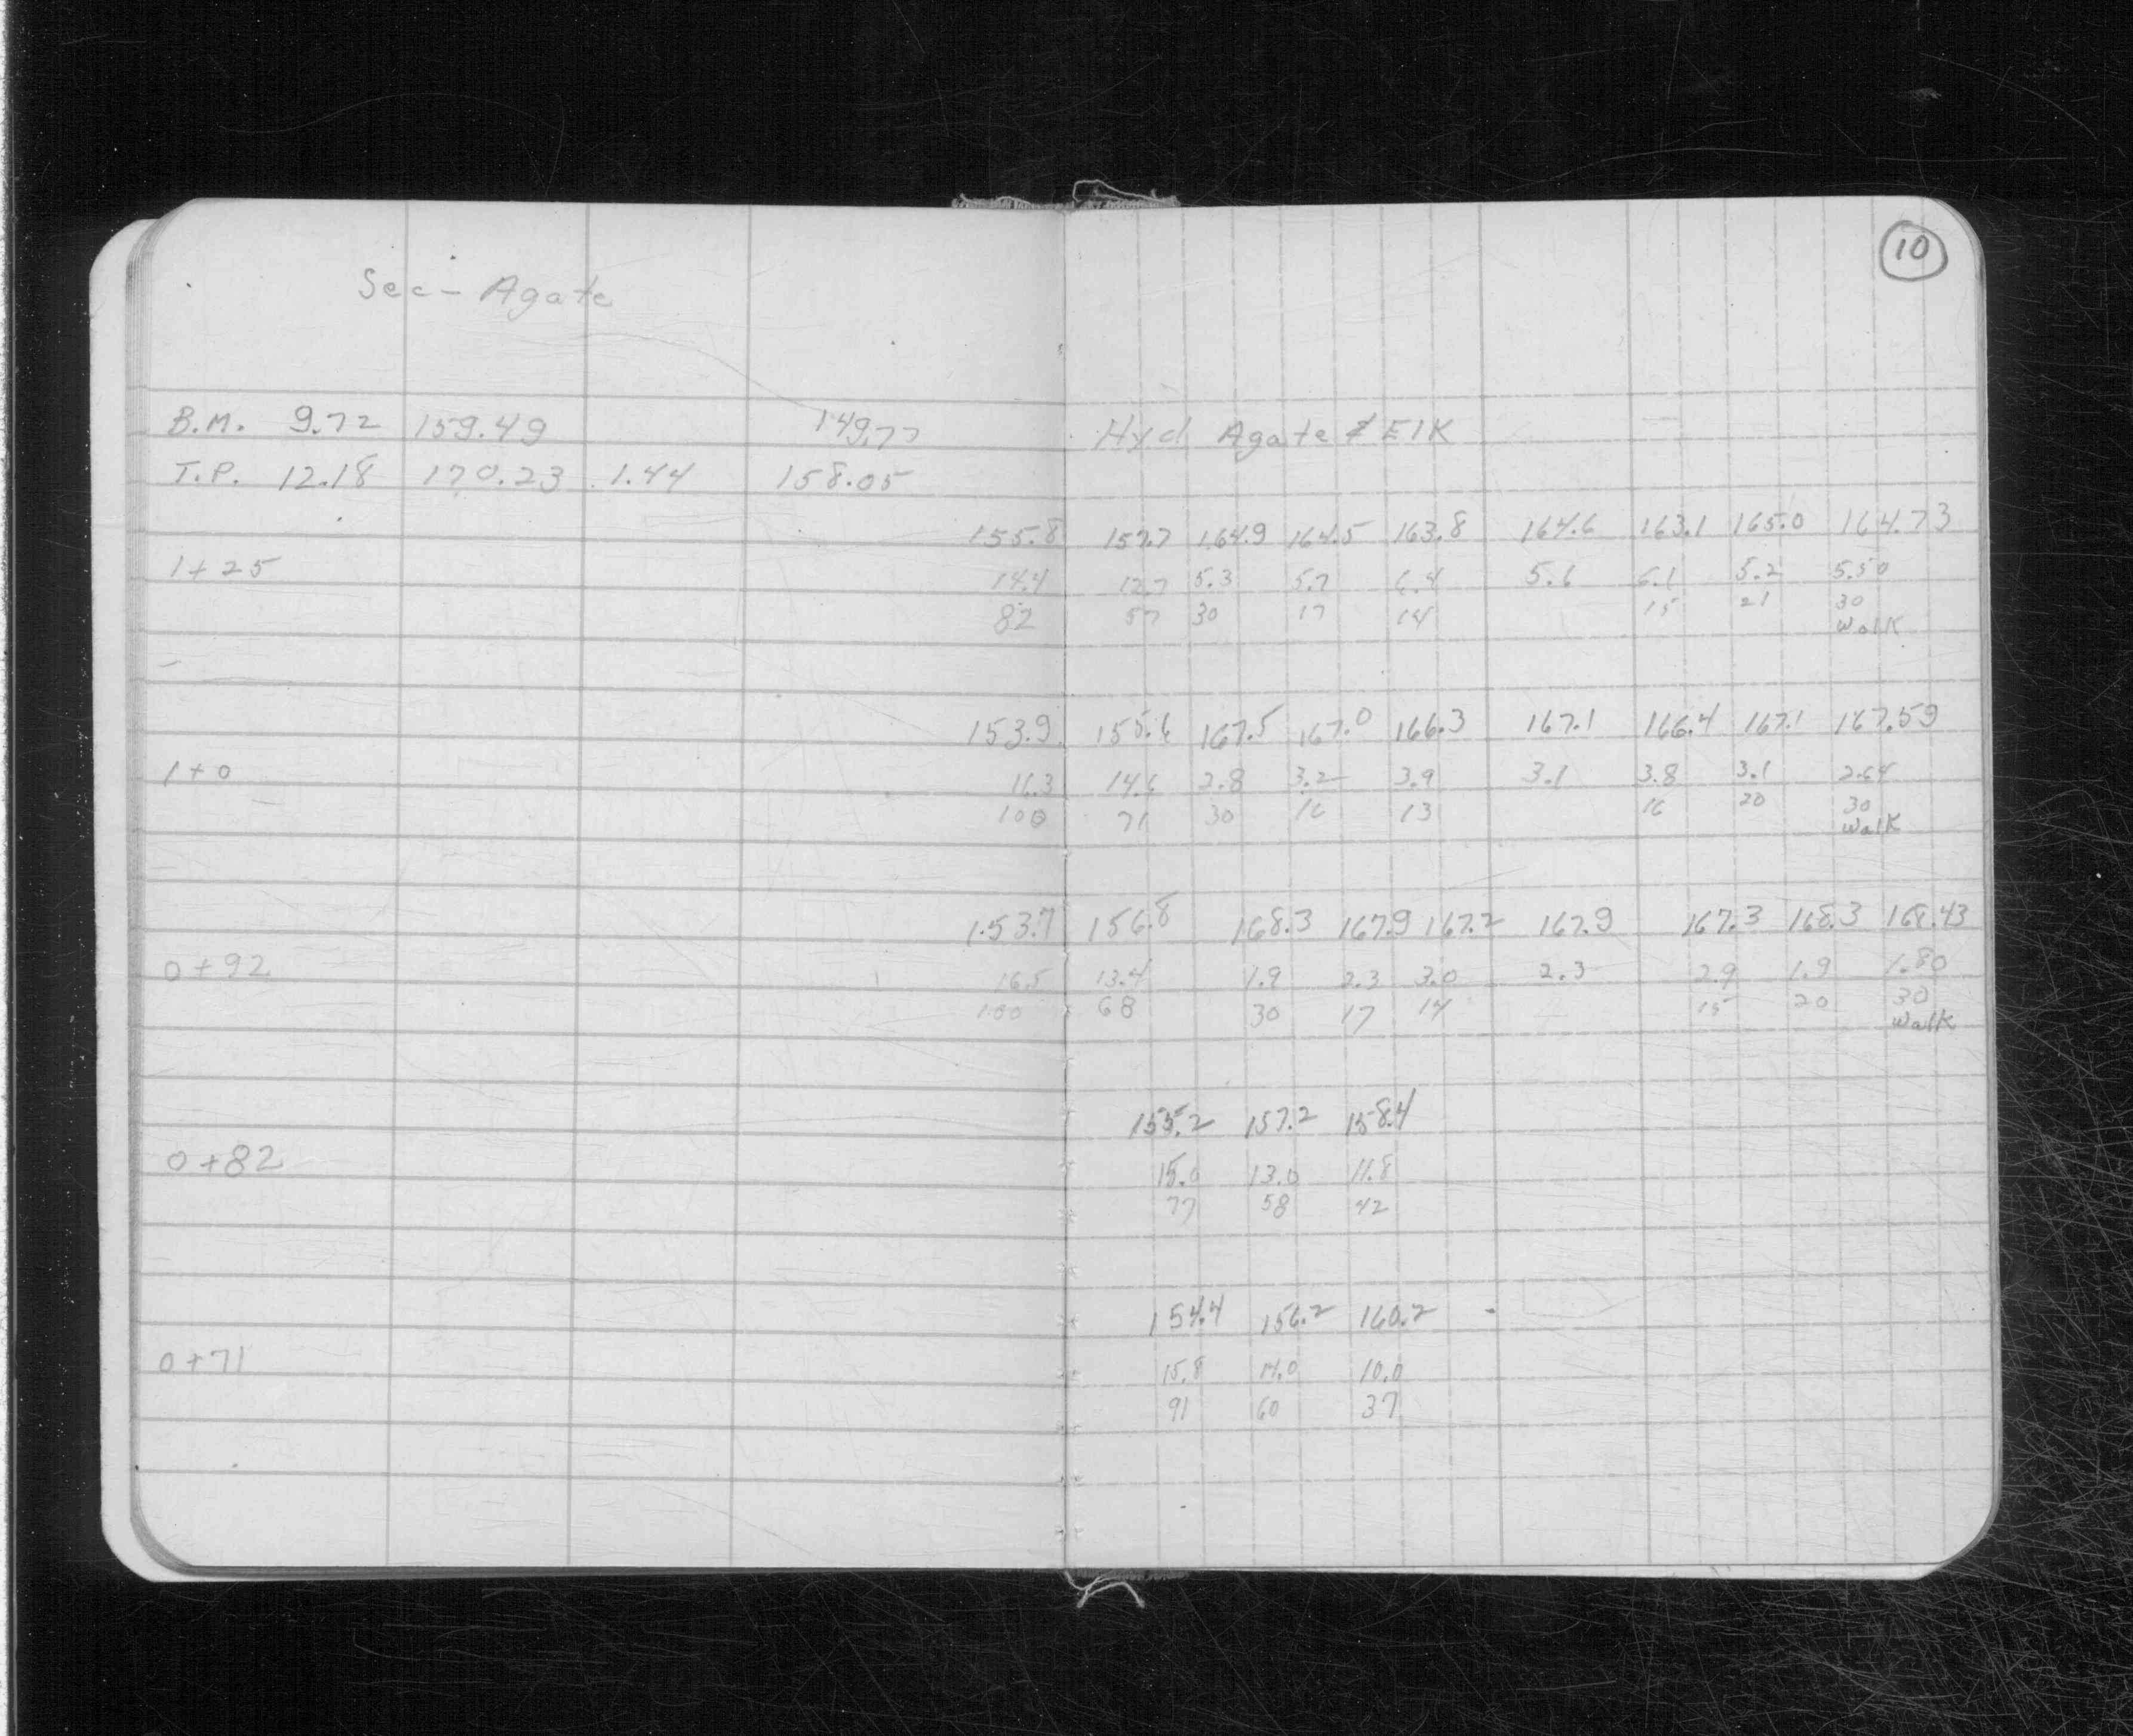 10
Sec - Agate
B.M. 9.72 159.49 149.77 Hyd Agate & Elk
T.P. 12.18 170.23 1.44 158.05
155.8 157.7 164.9 164.5 163.8 164.6 163.1 165.0 164.73
1+25 14.4 12.7 5.3 5.7 6.4 5.6 6.1 5.2 5.50
82 57 30 17 14 15 21 30
Walk
153.9 155.6 167.5 167.0 166.3 167.1 166.4 167.1 167.59
1+0 16.3 14.6 2.8 3.2 3.9 3.1 3.8 3.1 2.64
100 71 30 16 13 16 20 30
Walk
153.7 156.8 168.3 167.9 167.2 167.9 167.3 168.3 168.43
0+92 16.5 13.4 1.9 2.3 3.0 2.3 2.9 1.9 1.80
100 68 30 17 14 15 20 30
Walk
155.2 157.2 158.4
0+82 15.0 13.0 11.8
77 58 42
154.4 156.2 160.2
0+71 15.8 14.0 10.0
91 60 37